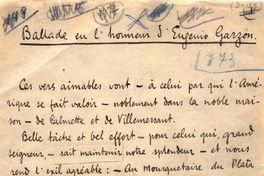 Ballade en l'honneur d'Eugenio Garzon.
1843
Ces vers aimables vont — à celui par qui l'Amé-
rique se fait valoir — noblement dans la noble mai-
son — de Calmette et de Villemessant.
Belle tâche et bel effort — pour celui qui, grand
seigneur — sait maintenir notre splendeur — et nous
rend l'exil agréable : — Au Mousquetaire du Plata